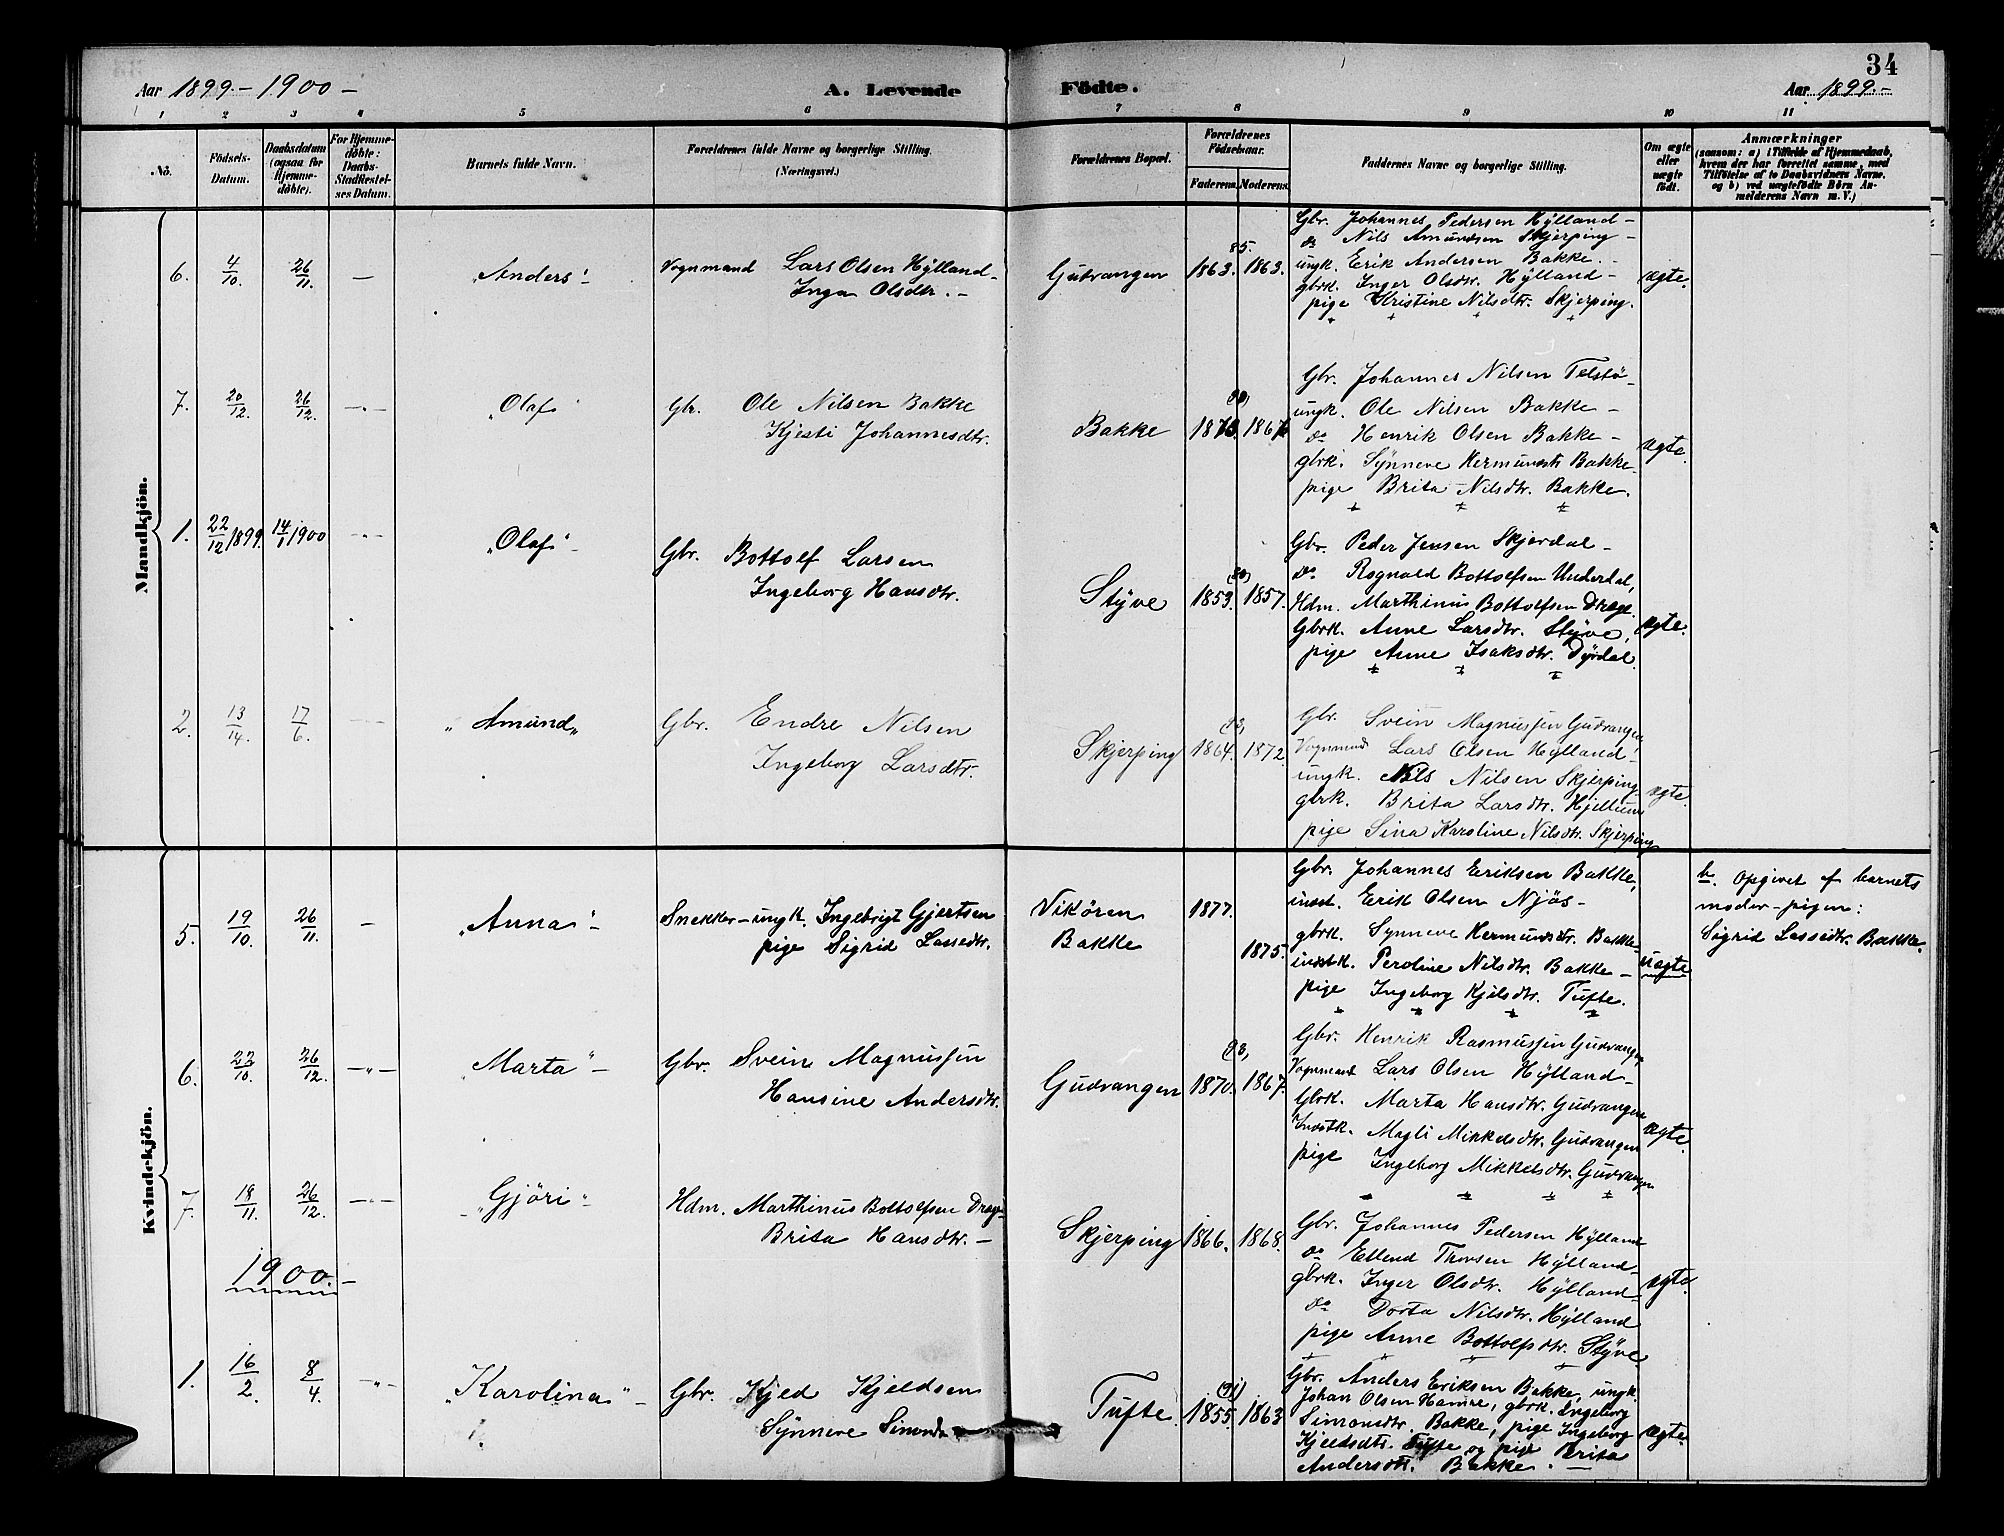 34
Aar 1899.- 1900 -
A. Levende Födte.
Aar 1899.-
1 2 3 4 5 6 7 8 9 10 11
No.
Födsels-Datum.
Daabsdatum (ogsaa for Hjemmedöbte).
For Hjemmedöbte: Daabs-Stadfæstelses Datum.
Barnets fulde Navn.
Forældrenes fulde Navne og borgerlige Stilling.
(Næringsvei.)
Forældrenes Bopæl.
Forældrenes Födselsaar.
Faderens. Moderens.
Faddernes Navne og borgerlige Stilling.
Om ægte eller uægte födt.
Anmærkninger
(saasom: a) i Tilfælde af Hjemmedaab,
hvem der har forrettet samme, med
Tilföielse af to Daabsvidners Navne,
og b) ved uægtefödte Börn An-
melderens Navn m. V.)
Mandkjön.
6. 4/10. 26/11. — "Anders"
Vognmand Lars Olsen Hÿlland-
Inga Olsdtr. -
Gudvangen 1863. 85. 1863.
Gbr. Johannes Pedersen Hÿlland -
do Nils Amundsen Skjerping -
ungk. Erik Andersen Bakke. -
gbrk. Inger Olsdtr. Hÿlland -
pige Kristine Nilsdtr. Skjerping.
ægte.
7. 20/12. 26/12. —"— "Olaf"
Gbr. Ole Nilsen Bakke
Kjesti Johannesdtr.
Bakke
Gbr. Johannes Nilsen Telstö-
ungk. Ole Nilsen Bakke -
do Henrik Olsen Bakke -
gbrk. Sÿnneve Hermundsdtr. Bakke.
pige Brita Nilsdtr. Bakke.
ægte.
1. 22/12 1899. 14/1 1900 —"— "Olaf"-
Gbr. Bottolf Larsen
Ingeborg Hansdtr.
Stÿve 1853. 1857.
Gbr. Peder Jensen Skjerdal -
do Rognald Bottolfsen Underdal,
Hdm. Marthinus Bottolfsen Dræge.
Gbrk. Anne Larsdtr. Stÿve,
pige Anne Isaksdtr. Dÿrdal.
ægte.
2. 13/14. 17/6. "Amund"
Gbr. Endre Nilsen
Ingeborg Larsdtr.
Skjerping 1864. 1872.
Gbr. Svein Magnussen Gudvangen
Vognmand Lars Olsen Hÿlland
ungk. Nils Nilsen Skjerping.
gbrk. Brita Larsdtr. Hjellum
pige Sina Karoline Nilsdtr. Skjerping
ægte.
Kvindekjön.
5. 19/10. 26/11. — "Anna"-
Snekker - ungk. Ingebrigt Gjertsen
pige Sigrid Lassedtr.
Vikören
Bakke
1877. 1875.
Gbr. Johannes Eriksen Bakke,
indst. Erik Olsen Njøs -
gbrk. Sÿnneve Hermundsdtr. Bakke-
indstk. Peroline Nilsdtr. Bakke -
pige Ingeborg Kjelsdtr. Tufte.
uægte
b. Opgivet af barnets
moder - pigen:
Sigrid Lassedtr. Bakke.
6. 22/10. 26/12. —"— "Marta"-
Gbr. Svein Magnussen
Hansine Andersdtr.
Gudvangen 1870. 1867.
Gbr. Henrik Rasmussen Gudvangen
Vognmand Lars Olsen Hÿlland -
Gbrk. Marta Hansdtr. Gudvangen
Indstk. Magli Mikkelsdtr. Gudvangen
pige Ingeborg Mikkelsdtr. Gudvangen
ægte.
7. 18/11. 26/12. —"— "Gjöri"
Hdm. Marthinus Bottolfsen Dræge
Brita Hansdtr. -
Skjerping 1866. 1868.
Gbr. Johannes Pedersen Hÿlland
do Ellend Thorsen Hÿlland-
gbrk. Inger Olsdtr. Hÿlland-
do Dorta Nilsdtr. Hÿlland
pige Anne Bottolfsdtr. Stÿve
ægte.
1900. -
1. 16/2 8/4 "Karolina"-
Gbr. Kjed Kjeldsen
Sÿnneve
Tufte 1855. (91) 1863
Gbr. Anders Eriksen Bakke, ungk.
Johan Olsen Hamre, gbrk. Ingeborg
Simonsdtr. Bakke, pige Ingeborg
Kjeldsdtr. Tufte og pige Brita
Andersdtr. Bakke. -
ægte.